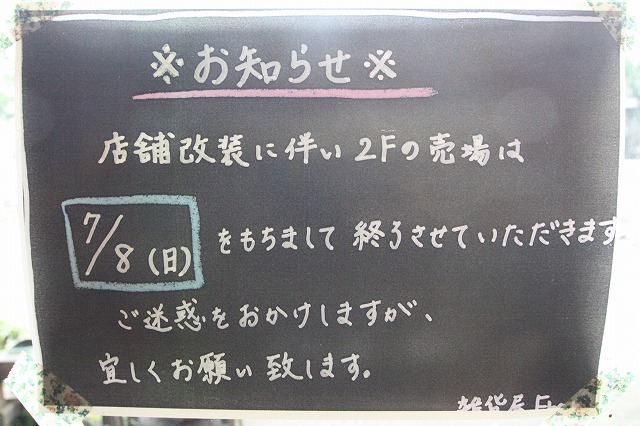 ※お知らせ※
店舗改装に伴い2Fの売場は
7/8(日)をもちまして終了させていただきます
ご迷惑をおかけしますが、
宜しくお願い致します。
雑貨屋